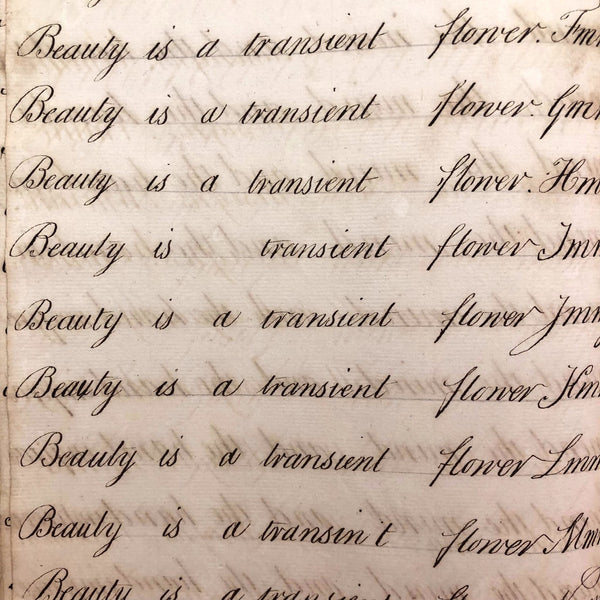 Beauty is a transient flower. Fm
Beauty is a transient flower. Gm
Beauty is a transient flower. Hm
Beauty is transient flower Imm
Beauty is a transient flower Jmm
Beauty is a transient flower Km
Beauty is a transient flower Lmm
Beauty is a transin t flower Mm
Beauty is a